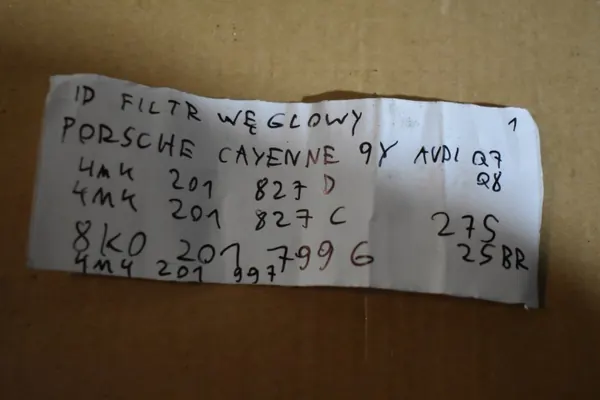 ID FILTR WĘGLOWY 1
PORSCHE CAYENNE 9Y AUDI Q7
Q8
4MK 201 827 D
4MK 201 827 C 275
8K0 201 799 G 25BR
4M4 201 997